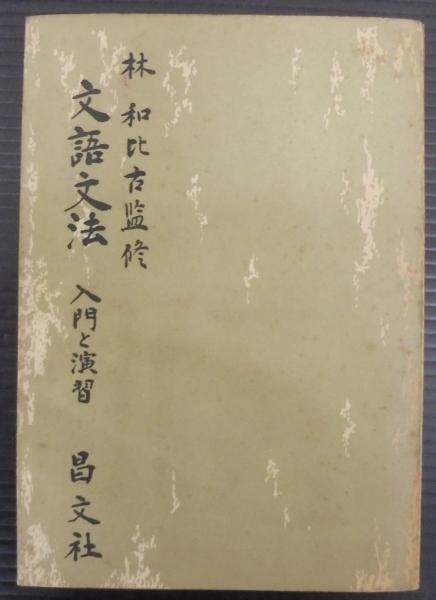 林 和比古監修
文語文法 入門と演習 昌文社